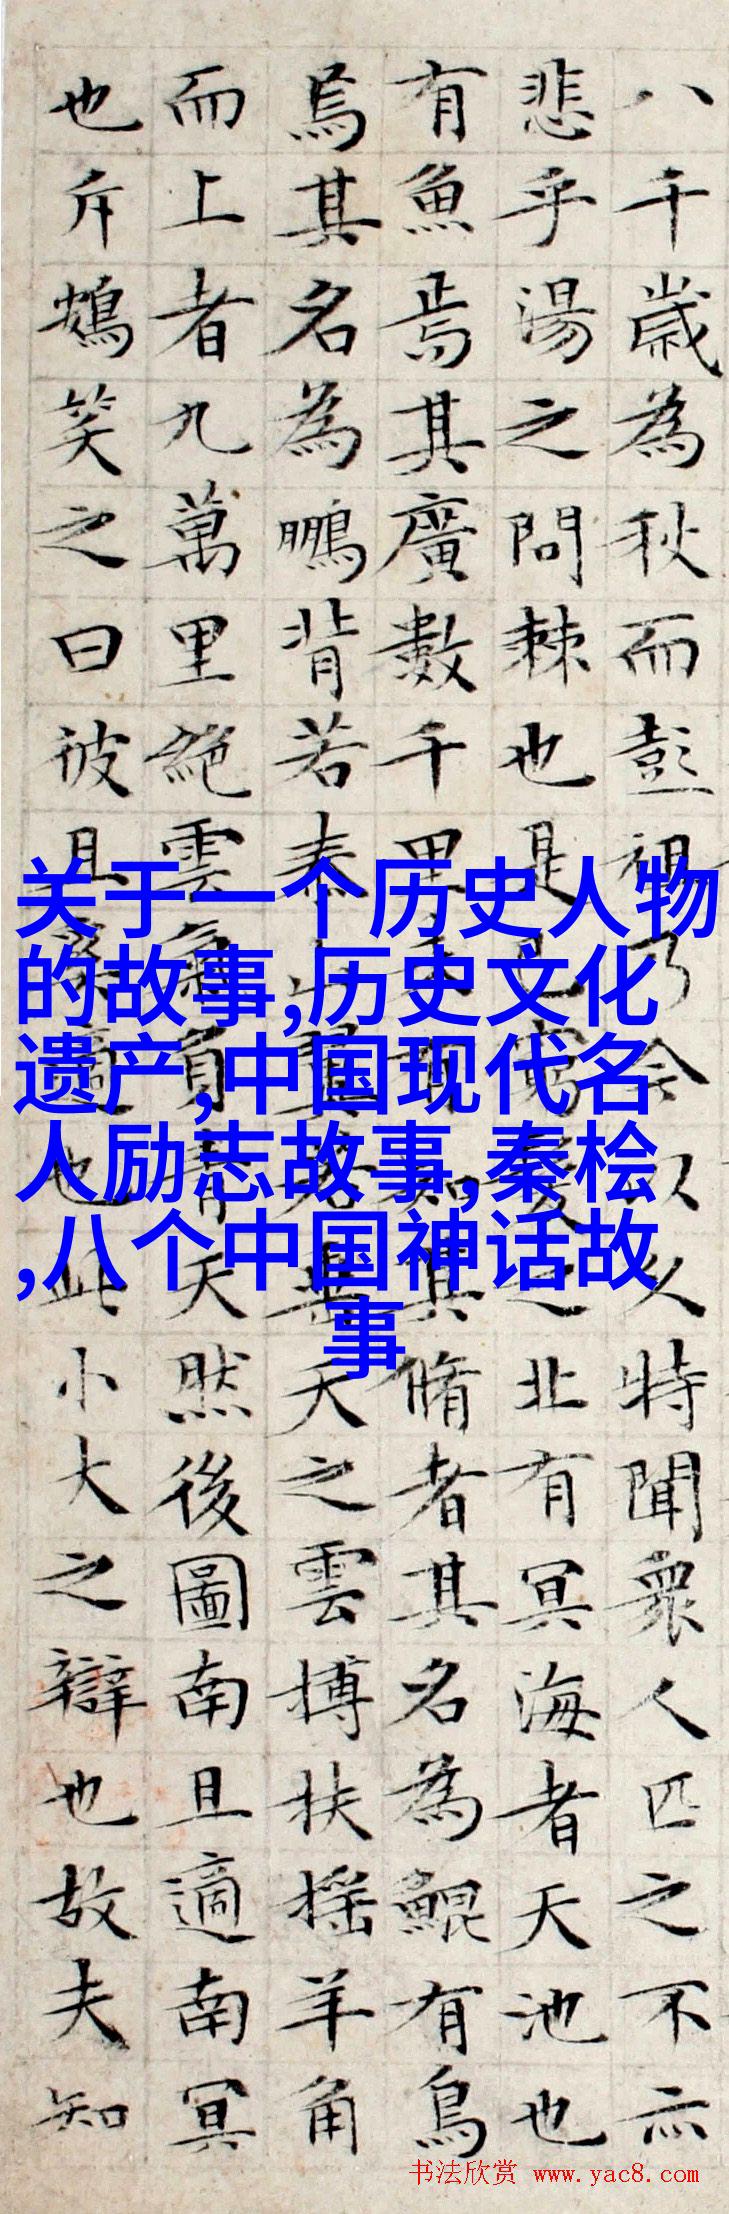 八千歲為秋而彭祖乃今以久特聞衆人匹之不亦
悲乎湯之問棘也是已窮髮之北有冥海者天池也
有魚焉其廣數千里未有知其脩者其名為鯤有鳥
焉其名為鵬背若泰山翼若垂天之雲搏扶搖羊角
而上者九萬里絕雲氣負青天然後圖南且適南冥
也斥鴳笑之曰彼且奚適也此小大之辯也故夫知
关于一个历史人物
的故事,历史文化
遗产,中国现代名
人励志故事,秦桧
,八个中国神话故
事
书法欣赏 www.yac8.com